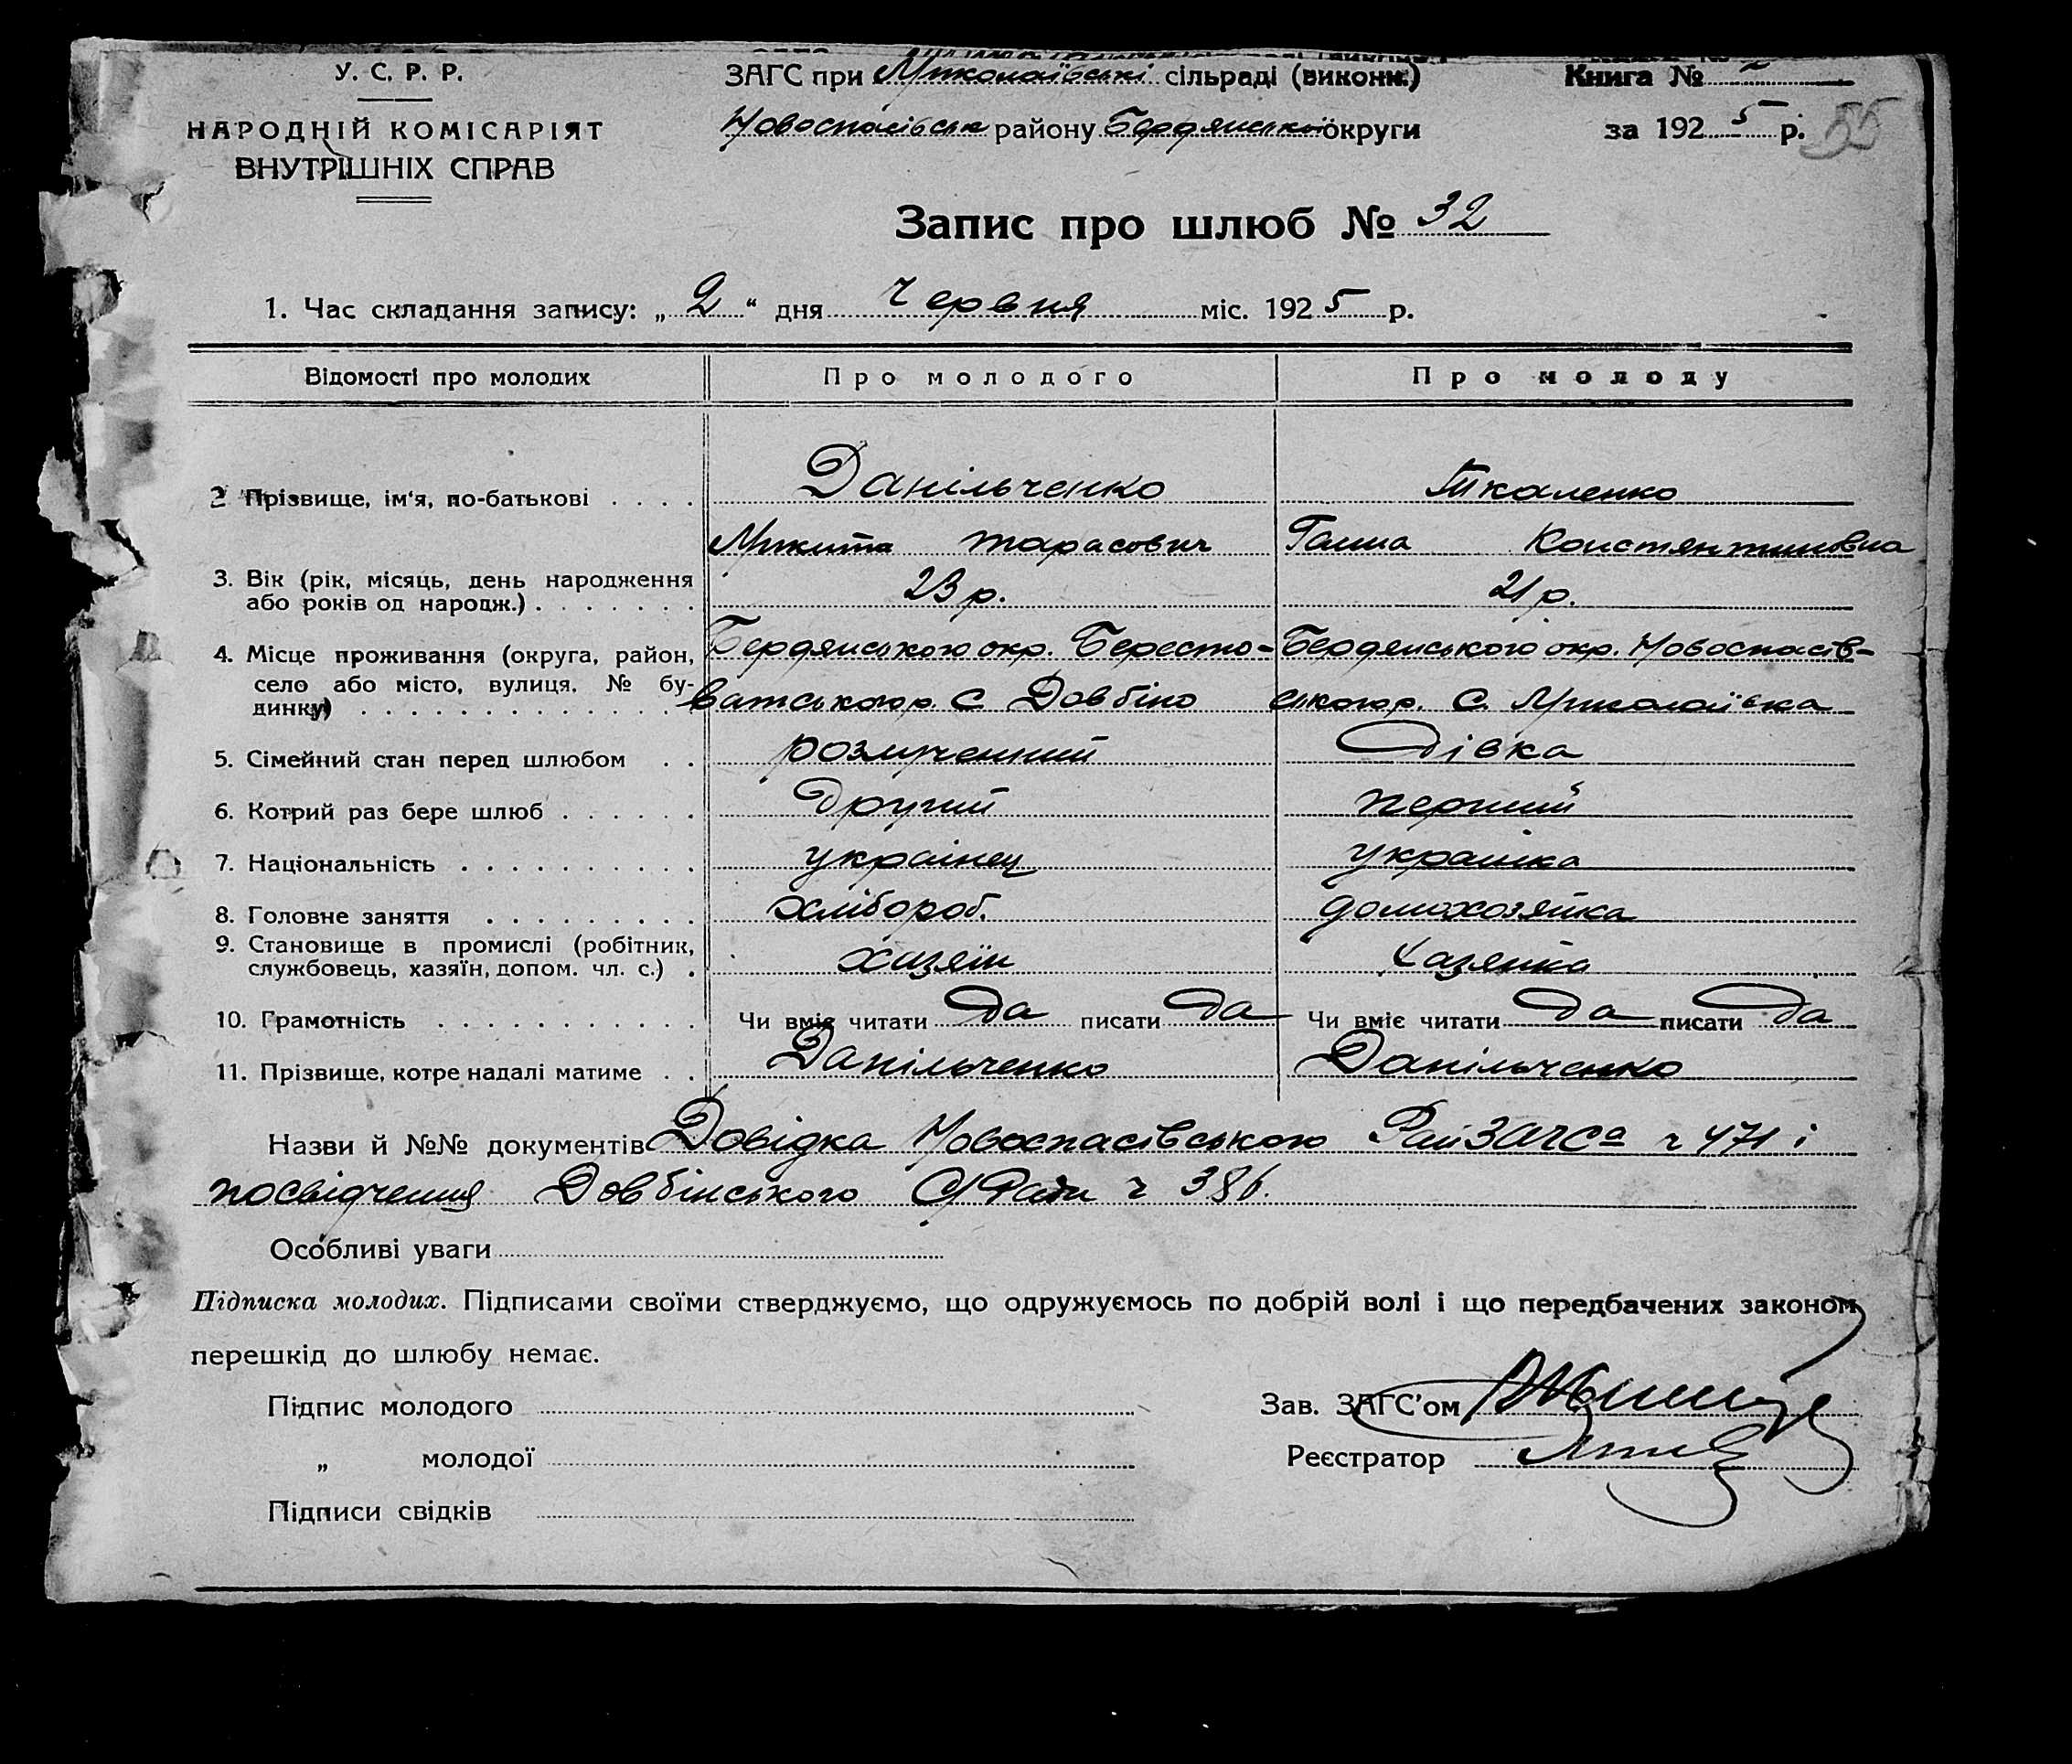 У. С. Р. Р.
НАРОДНІЙ КОМІСАРІЯТ
ВНУТРІШНІХ СПРАВ
ЗАГС при Миколаївські сільраді (виконк.)
Новоспасівськ району Бердянської округи
Книга №
за 1925 р. 55
Запис про шлюб № 32
1. Час складання запису: „2“ дня Червня міс. 1925 р.
Відомості про молодих Про молодого Про молоду
2 Прізвище, ім'я, по-батькові . . . . Данільченко Ткаленко
Микита Тарасович Ганна Констянтиновна
3. Вік (рік, місяць, день народження
або років од народж.) . . . . . . . 23 р. 21 р.
4. Місце проживання (округа, район, Бердянського окр. Бересто- Бердянського окр. Новоспасів-
село або місто, вулиця, № бу-
динку) . . . . . . . . . . . . . ватського р. С Довбіно ського р. С. Миколаївка
5. Сімейний стан перед шлюбом . . розлученний дівка
6. Котрий раз бере шлюб . . . . . . Другий перший
7. Національність . . . . . . . . . . українец украінка
8. Головне заняття . . . . . . . . . хлібороб. домохозяйка
9. Становище в промислі (робітник,
службовець, хазяїн, допом. чл. с.) . хазяїн хазяйка
10. Грамотність . . . . . . . . . . . Чи вміє читати да писати да Чи вміє читати да писати да
11. Прізвище, котре надалі матиме . . Данільченко Данільченко
Назви й №№ документів Довідка Новоспасівського РайЗАГСа ч 471 і
посвідчення Довбінського С/Ради ч 386.
Особливі уваги
Підписка молодих. Підписами своїми стверджуємо, що одружуємось по добрій волі і що передбачених законом
перешкід до шлюбу немає.
Підпис молодого
„ молодої
Підписи свідків
Зав. ЗАГС'ом
Реєстратор